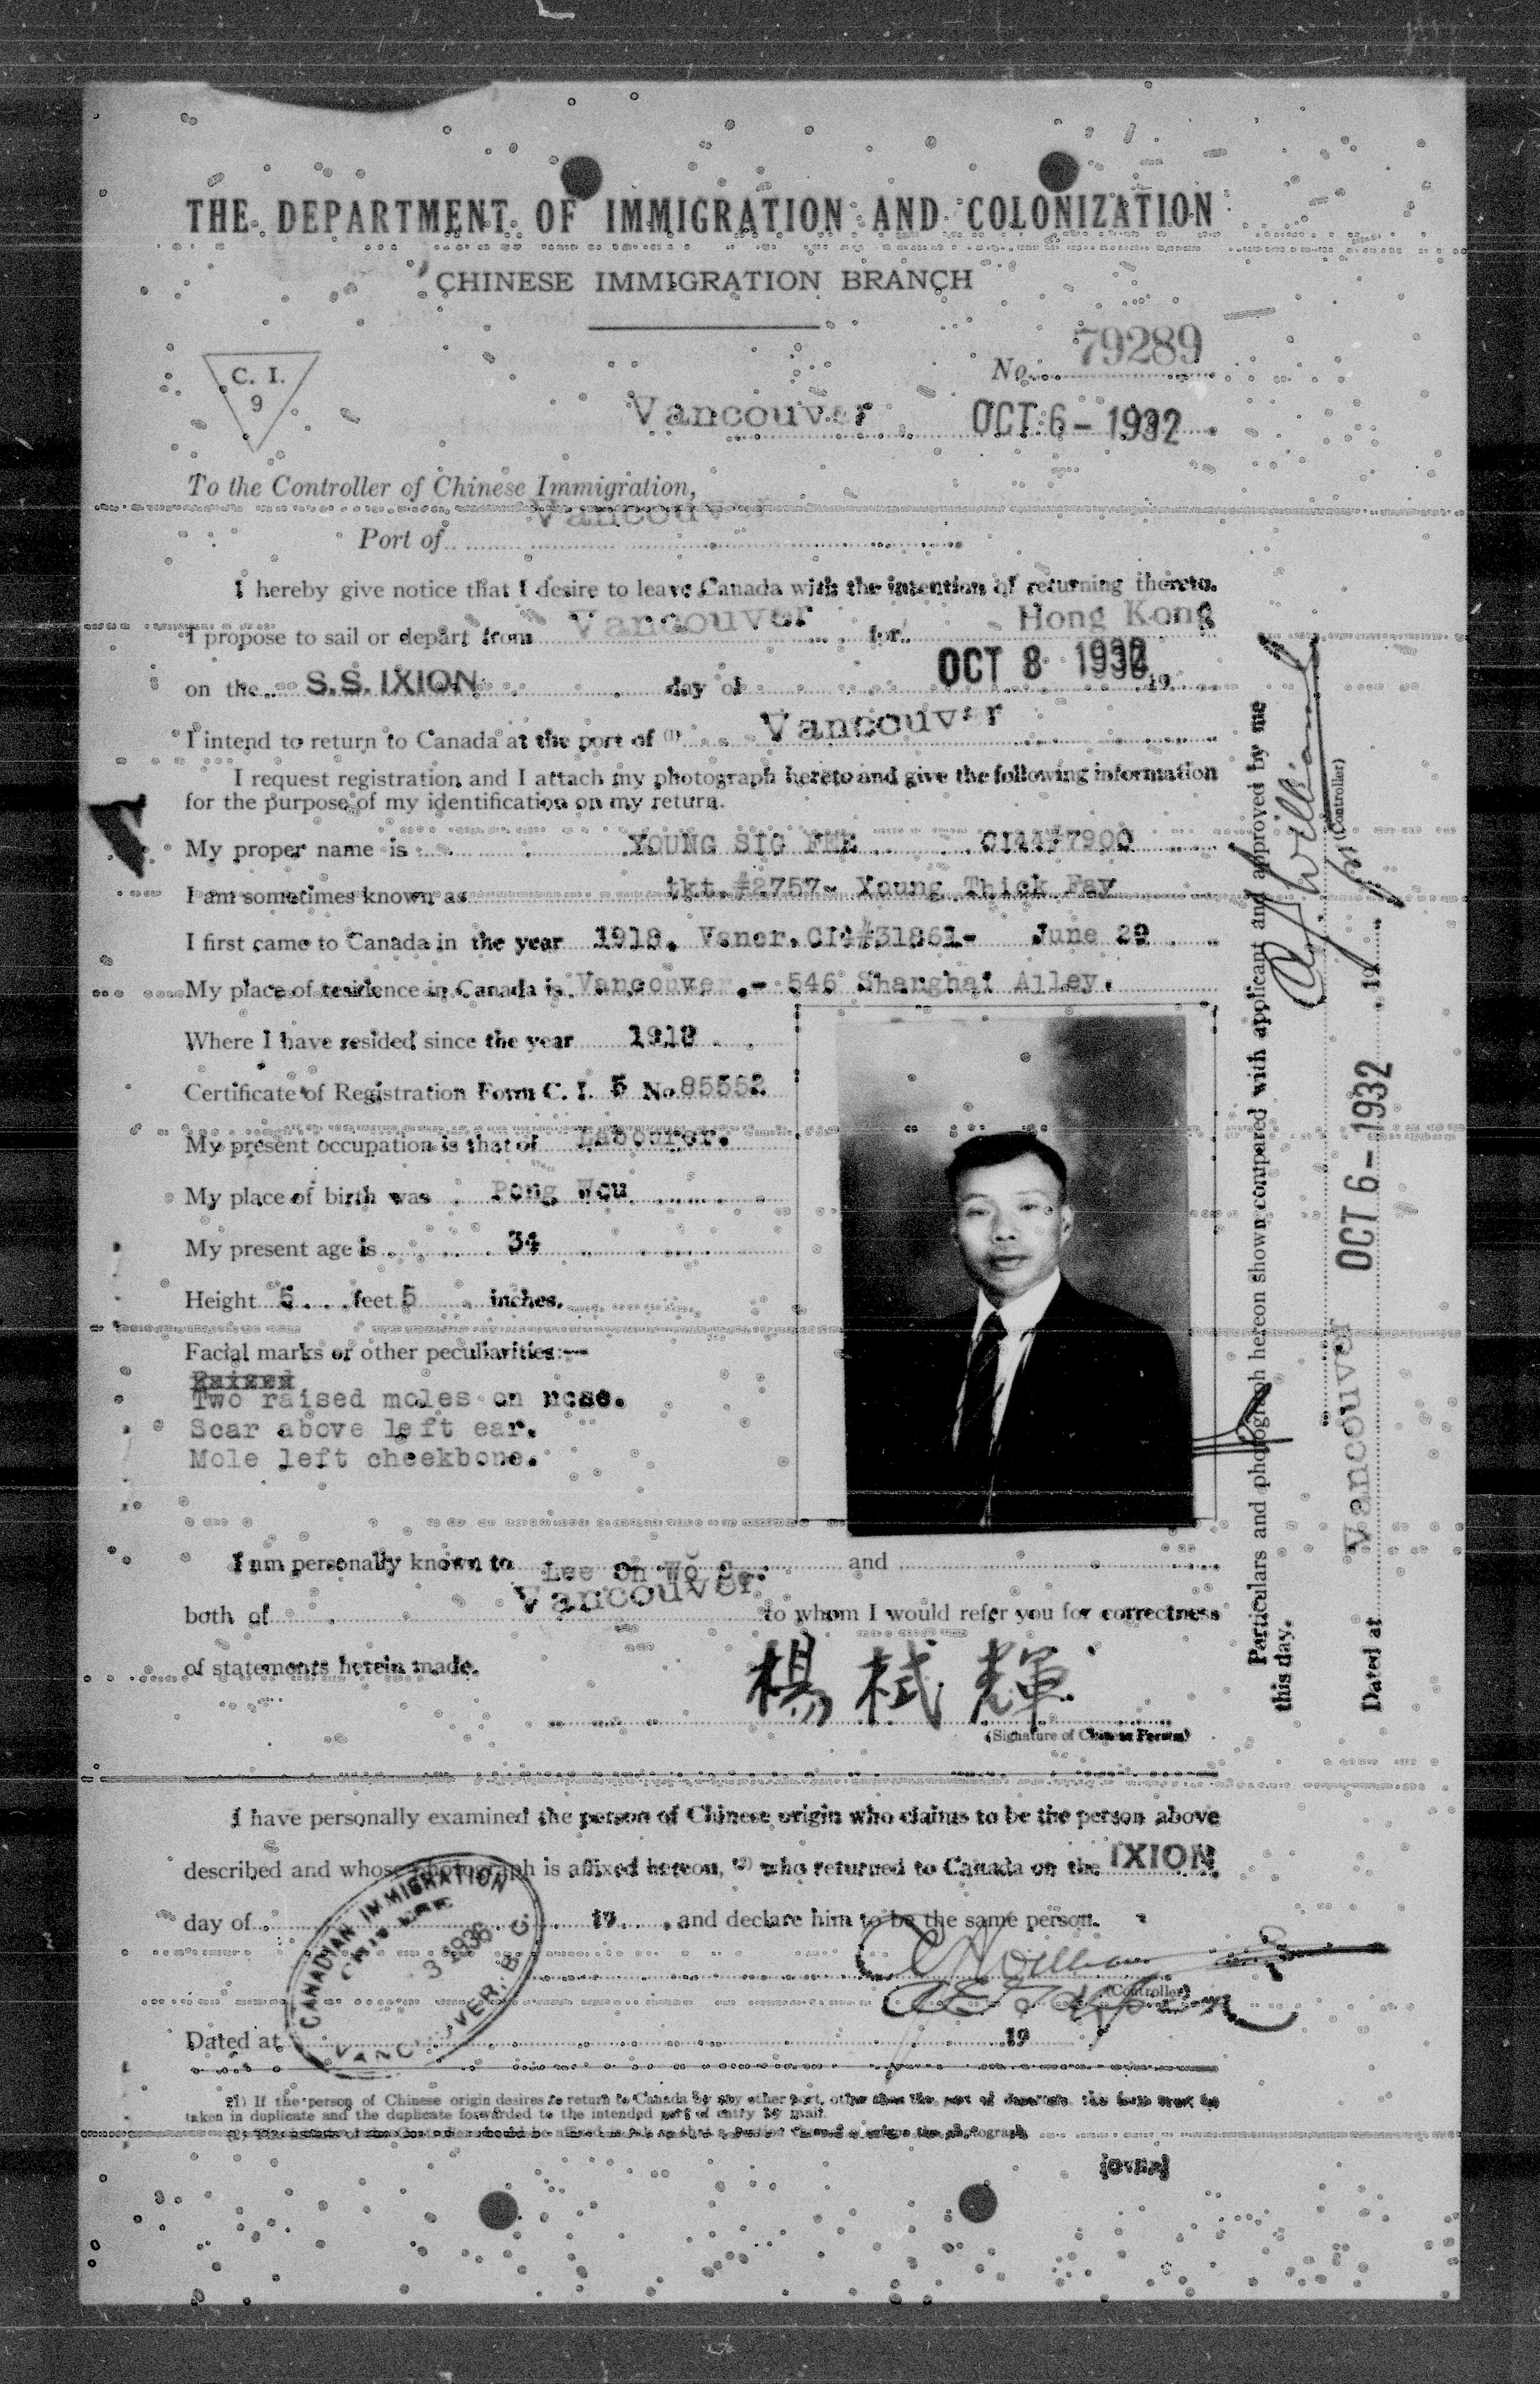 THE DEPARTMENT OF IMMIGRATION AND COLONIZATION
CHINESE IMMIGRATION BRANCH
C. I.
9
No. 79289
Vancouver OCT 6 - 1932
To the Controller of Chinese Immigration,
Vancouver
Port of
I hereby give notice that I desire to leave Canada with the intention of returning thereto.
I propose to sail or depart from Vancouver for Hong Kong
on the S.S. IXION day of OCT 8 1932 19
I intend to return to Canada at the port of (1) Vancouver
I request registration and I attach my photograph hereto and give the following information
for the purpose of my identification on my return.
My proper name is YOUNG SIG FEE
I am sometimes known as tkt. #2757- Young Thick Fay
I first came to Canada in the year 1918. Vancr. CI4#31861- June 29
My place of residence in Canada is Vancouver.- 546 Shanghai Alley.
Where I have resided since the year 1918
Certificate of Registration Form C. I. 5 No. 85552
My present occupation is that of Labourer.
My place of birth was
My present age is 34
Height 5 feet 5 inches.
Facial marks or other peculiarities:—
Raised
Two raised moles on nose.
Scar above left ear.
Mole left cheekbone.
I am personally known to Lee On Wo Co. and
both of Vancouver to whom I would refer you for correctness
of statements herein made.
楊栻輝
(Signature of Chinese Person)
I have personally examined the person of Chinese origin who claims to be the person above
described and whose photograph is affixed hereon, (2) who returned to Canada on the IXION
day of 19 , and declare him to be the same person.
(Controller)
Dated at 19
CANADIAN IMMIGRATION
3 1936
VANCOUVER, B. C.
(1) If the person of Chinese origin desires to return to Canada by any other port, other than the port of departure, this form must be
taken in duplicate and the duplicate forwarded to the intended port of entry by mail.
(OVER)
Particulars and photograph hereon shown compared with applicant and approved by me
this day.
(Controller)
Dated at Vancouver OCT 6 - 1932 19